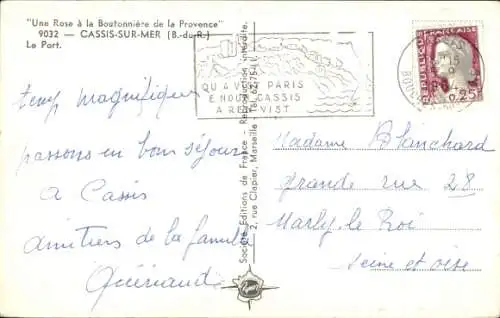 "Une Rose à la Boutonnière de la Provence"
9032 — CASSIS-SUR-MER (B.-du-R.)
Le Port.
temps magnifique
passons un bon séjour
à Cassis
amitiés de la famille
Société Editions de France - Reproduction interdite.
2, rue Clapier, Marseille - Tél. 62-75-11
QU A VIST PARIS
E NOUN CASSIS
A REN VIST
REPUBLIQUE FRANÇAISE
0,25
Madame Blanchard
grande rue 28
Marly le Roi
Seine et Oise